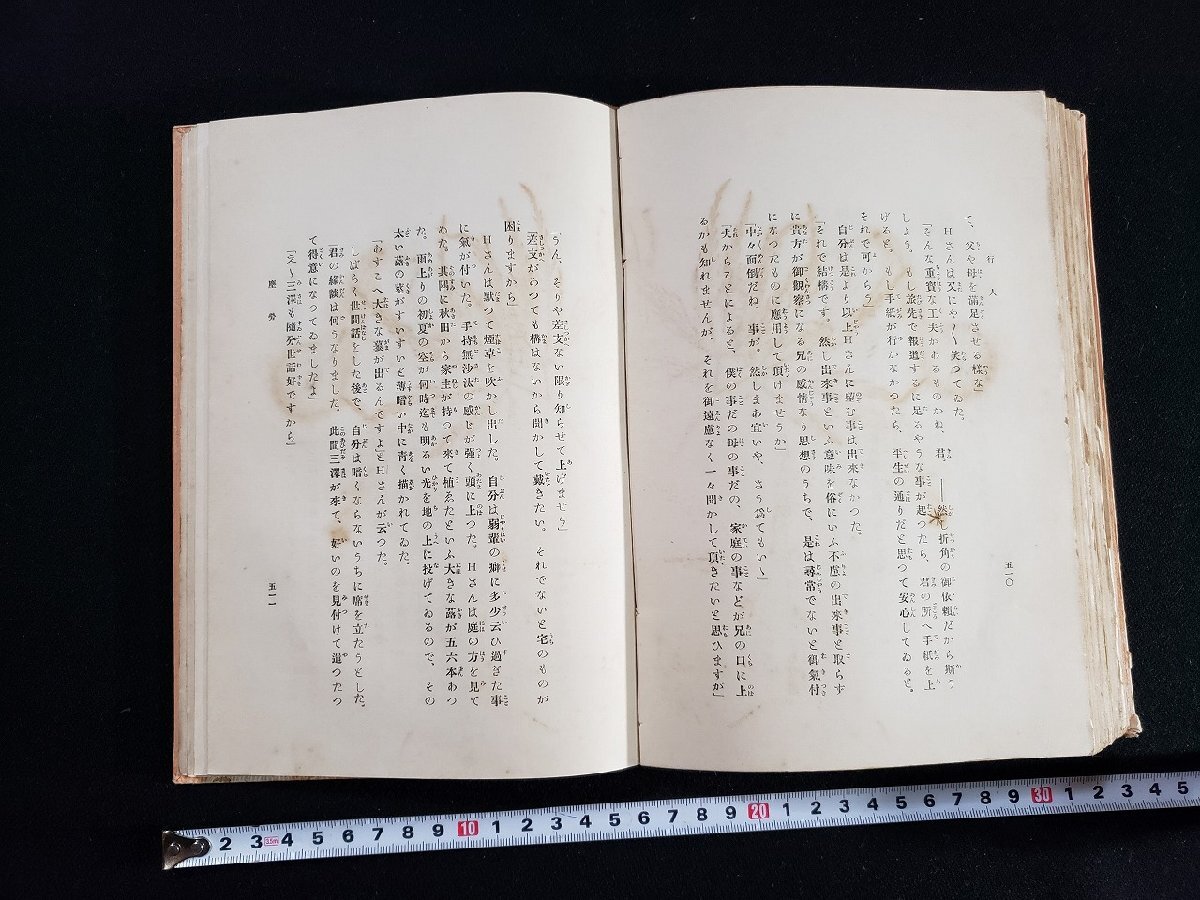 行人
五一〇
て、父や母を満足させる様な」
Hさんは又にや〱笑つてゐた。
「そんな重寶な工夫があるものかね、君。――然し折角の御依頼だから斯う
しよう。もし旅先で報道するに足るやうな事が起つたら、君の所へ手紙を上
げると。もし手紙が行かなかつたら、平生の通りだと思つて安心してゐると。
それで可からう」
自分は是より以上Hさんに望む事は出來なかつた。
「それで結構です。然し出來事といふ意味を俗にいふ不慮の出來事と取らず
に貴方が御觀察になる兄の感情なり思想のうちで、是は尋常でないと御氣付
になつたものに應用して頂けませうか」
「中々面倒だね、事が。然しまあ宜いや、さう爲てもいゝ」
「夫からことによると、僕の事だの母の事だの、家庭の事などが兄の口に上
るかも知れませんが、それを御遠慮なく一々聞かして頂きたいと思ひますが」
「うん、そりや差支ない限り知らせて上げませう」
「差支があつても構はないから聞かして戴きたい。それでないと宅のものが
困りますから」
Hさんは默つて煙草を吹かし出した。自分は弱輩の癖に多少云ひ過ぎた事
に氣が付いた。手持無沙汰の感じが強く頭に上つた。Hさんは庭の方を見て
ゐた。其隅に秋田から家主が持つて來て植ゑたといふ大きな蕗が五六本あつ
た。雨上りの初夏の空が何時迄も明るい光を地の上に投げてゐるので、その
太い蕗の莖がすい〱と薄暗い中に青く描かれてゐた。
「あすこへ大きな蟇が出るんですよ」とHさんが云つた。
しばらく世間話をした後で、自分は暗くならないうちに席を立たうとした。
「君の縁談は何うなりました。此間三澤が來て、好いのを見付けて遣つたつ
て得意になつてゐましたよ」
「えゝ三澤も隨分世話好ですから」
塵勞
五一一
2 3 3.5m 4 5 6 7 8 9 10 1 2 3 4 5 6 7 8 9 20 1 2 3 4 5 6 7 8 9 30 1 2 3 4 5